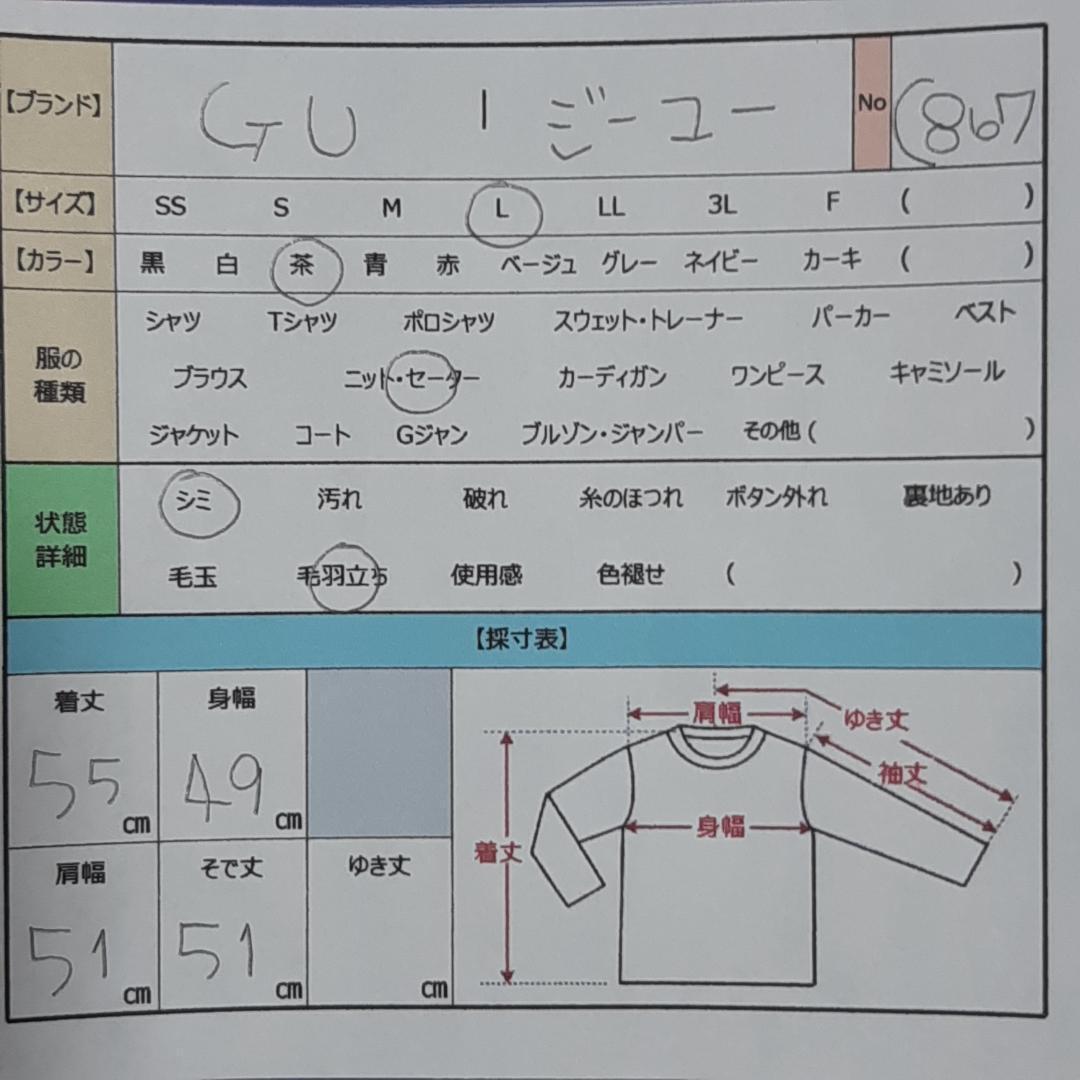 【ブランド】 GU | ジーユー No (867
【サイズ】 SS S M L LL 3L F ( )
【カラー】 黒 白 茶 青 赤 ベージュ グレー ネイビー カーキ ( )
服の種類
シャツ Tシャツ ポロシャツ スウェット・トレーナー パーカー ベスト
ブラウス ニット・セーター カーディガン ワンピース キャミソール
ジャケット コート Gジャン ブルゾン・ジャンパー その他 ( )
状態詳細
シミ 汚れ 破れ 糸のほつれ ボタン外れ 裏地あり
毛玉 毛羽立ち 使用感 色褪せ ( )
【採寸表】
着丈 身幅
55 cm 49 cm
肩幅 そで丈 ゆき丈
51 cm 51 cm cm
肩幅 ゆき丈
袖丈
身幅
着丈